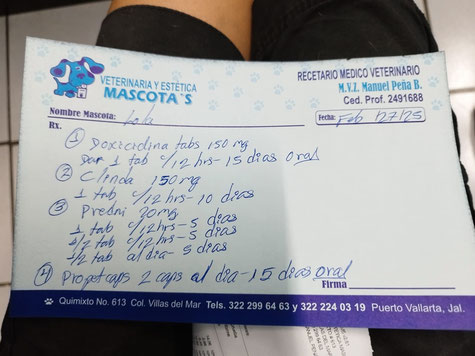 VETERINARIA Y ESTÉTICA
MASCOTA´S
RECETARIO MEDICO VETERINARIO
M.V.Z. Manuel Peña B.
Ced. Prof. 2491688
Nombre Mascota: Lola
Fecha: Feb /27/25
Rx.
① Doxiciclina tabs 150 mg
Dar 1 tab c/12 hrs - 15 dias Oral
② Clinda 150 mg
1 tab c/12 hrs - 10 dias
③ Predni 20 mg
1 tab c/12 hrs - 5 dias
1/2 tab c/12 hrs - 5 dias
1/2 tab al dia - 5 dias
④ Propetcaps 2 caps al dia - 15 dias oral
Firma
Quimixto No. 613 Col. Villas del Mar Tels. 322 299 64 63 y 322 224 03 19 Puerto Vallarta, Jal.